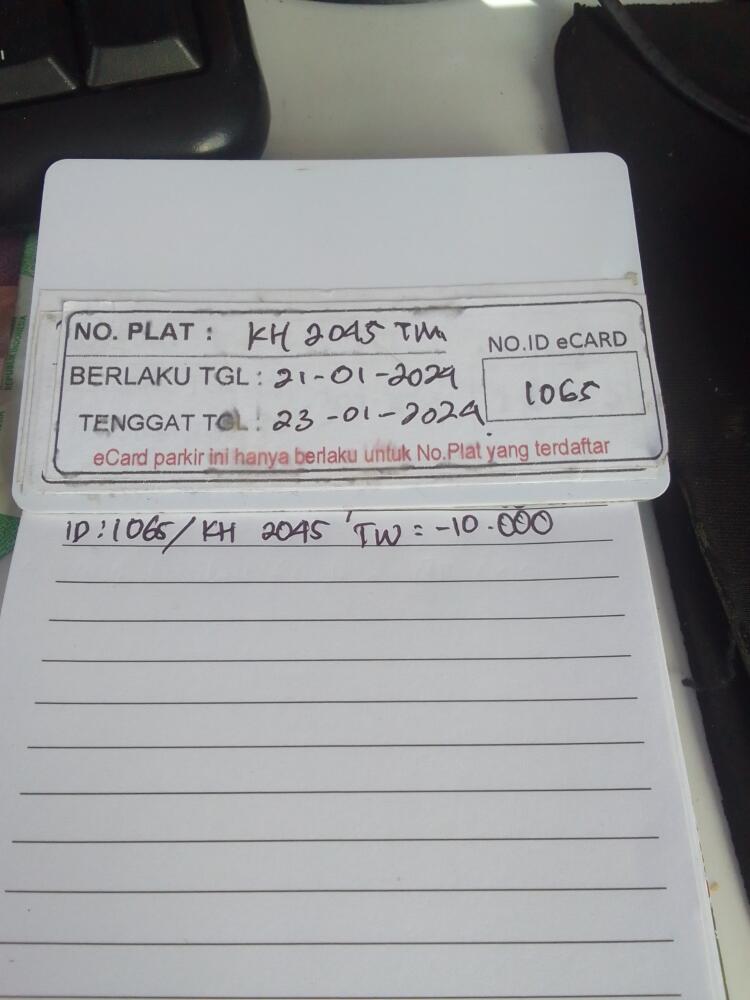 NO. PLAT : KH 2045 TW
NO.ID eCARD
BERLAKU TGL : 21-01-2024
1065
TENGGAT TGL : 23-01-2024
eCard parkir ini hanya berlaku untuk No.Plat yang terdaftar
ID:1065/KH 2045 TW = -10.000